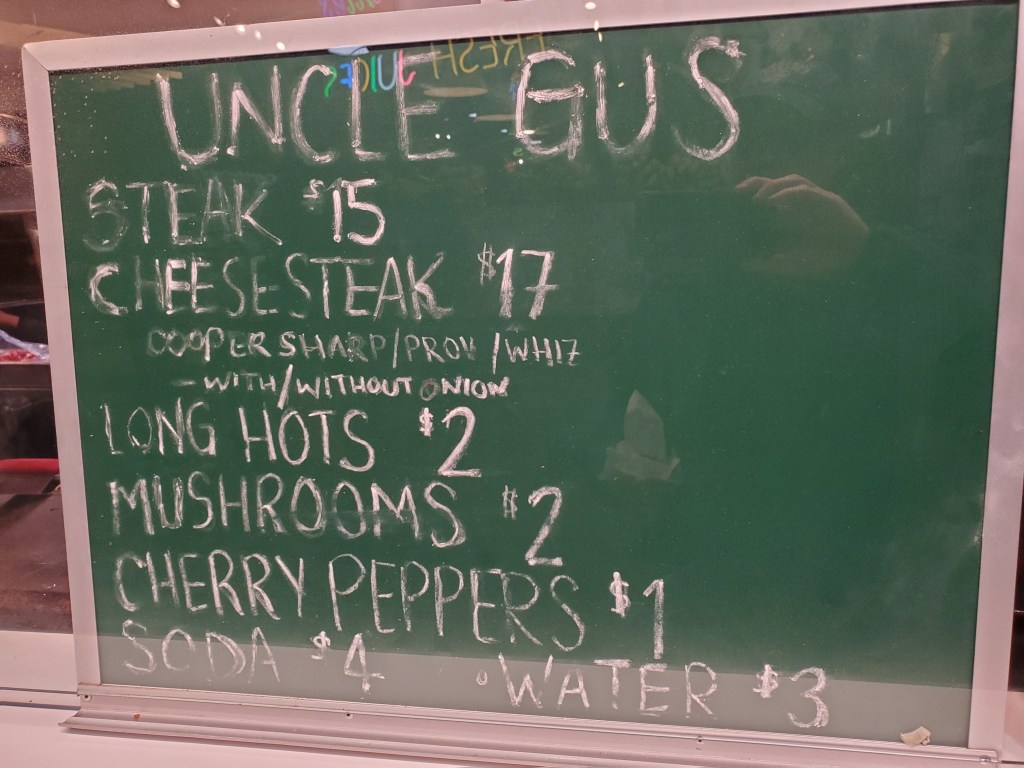 UNCLE GUS
STEAK $15
CHEESESTEAK $17
COOPER SHARP/PROV/WHIZ
- WITH/WITHOUT ONION
LONG HOTS $2
MUSHROOMS $2
CHERRY PEPPERS $1
SODA $4 · WATER $3
FRESH
JUICES